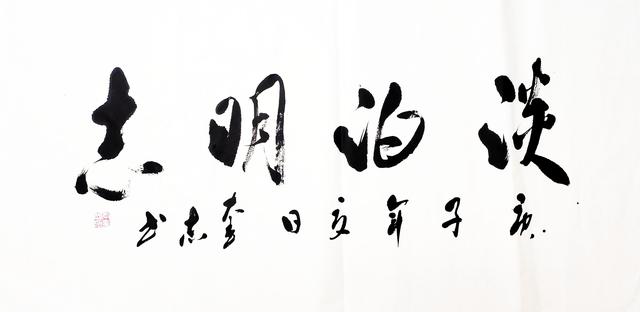 淡泊明志
庚子年夏日奎志书